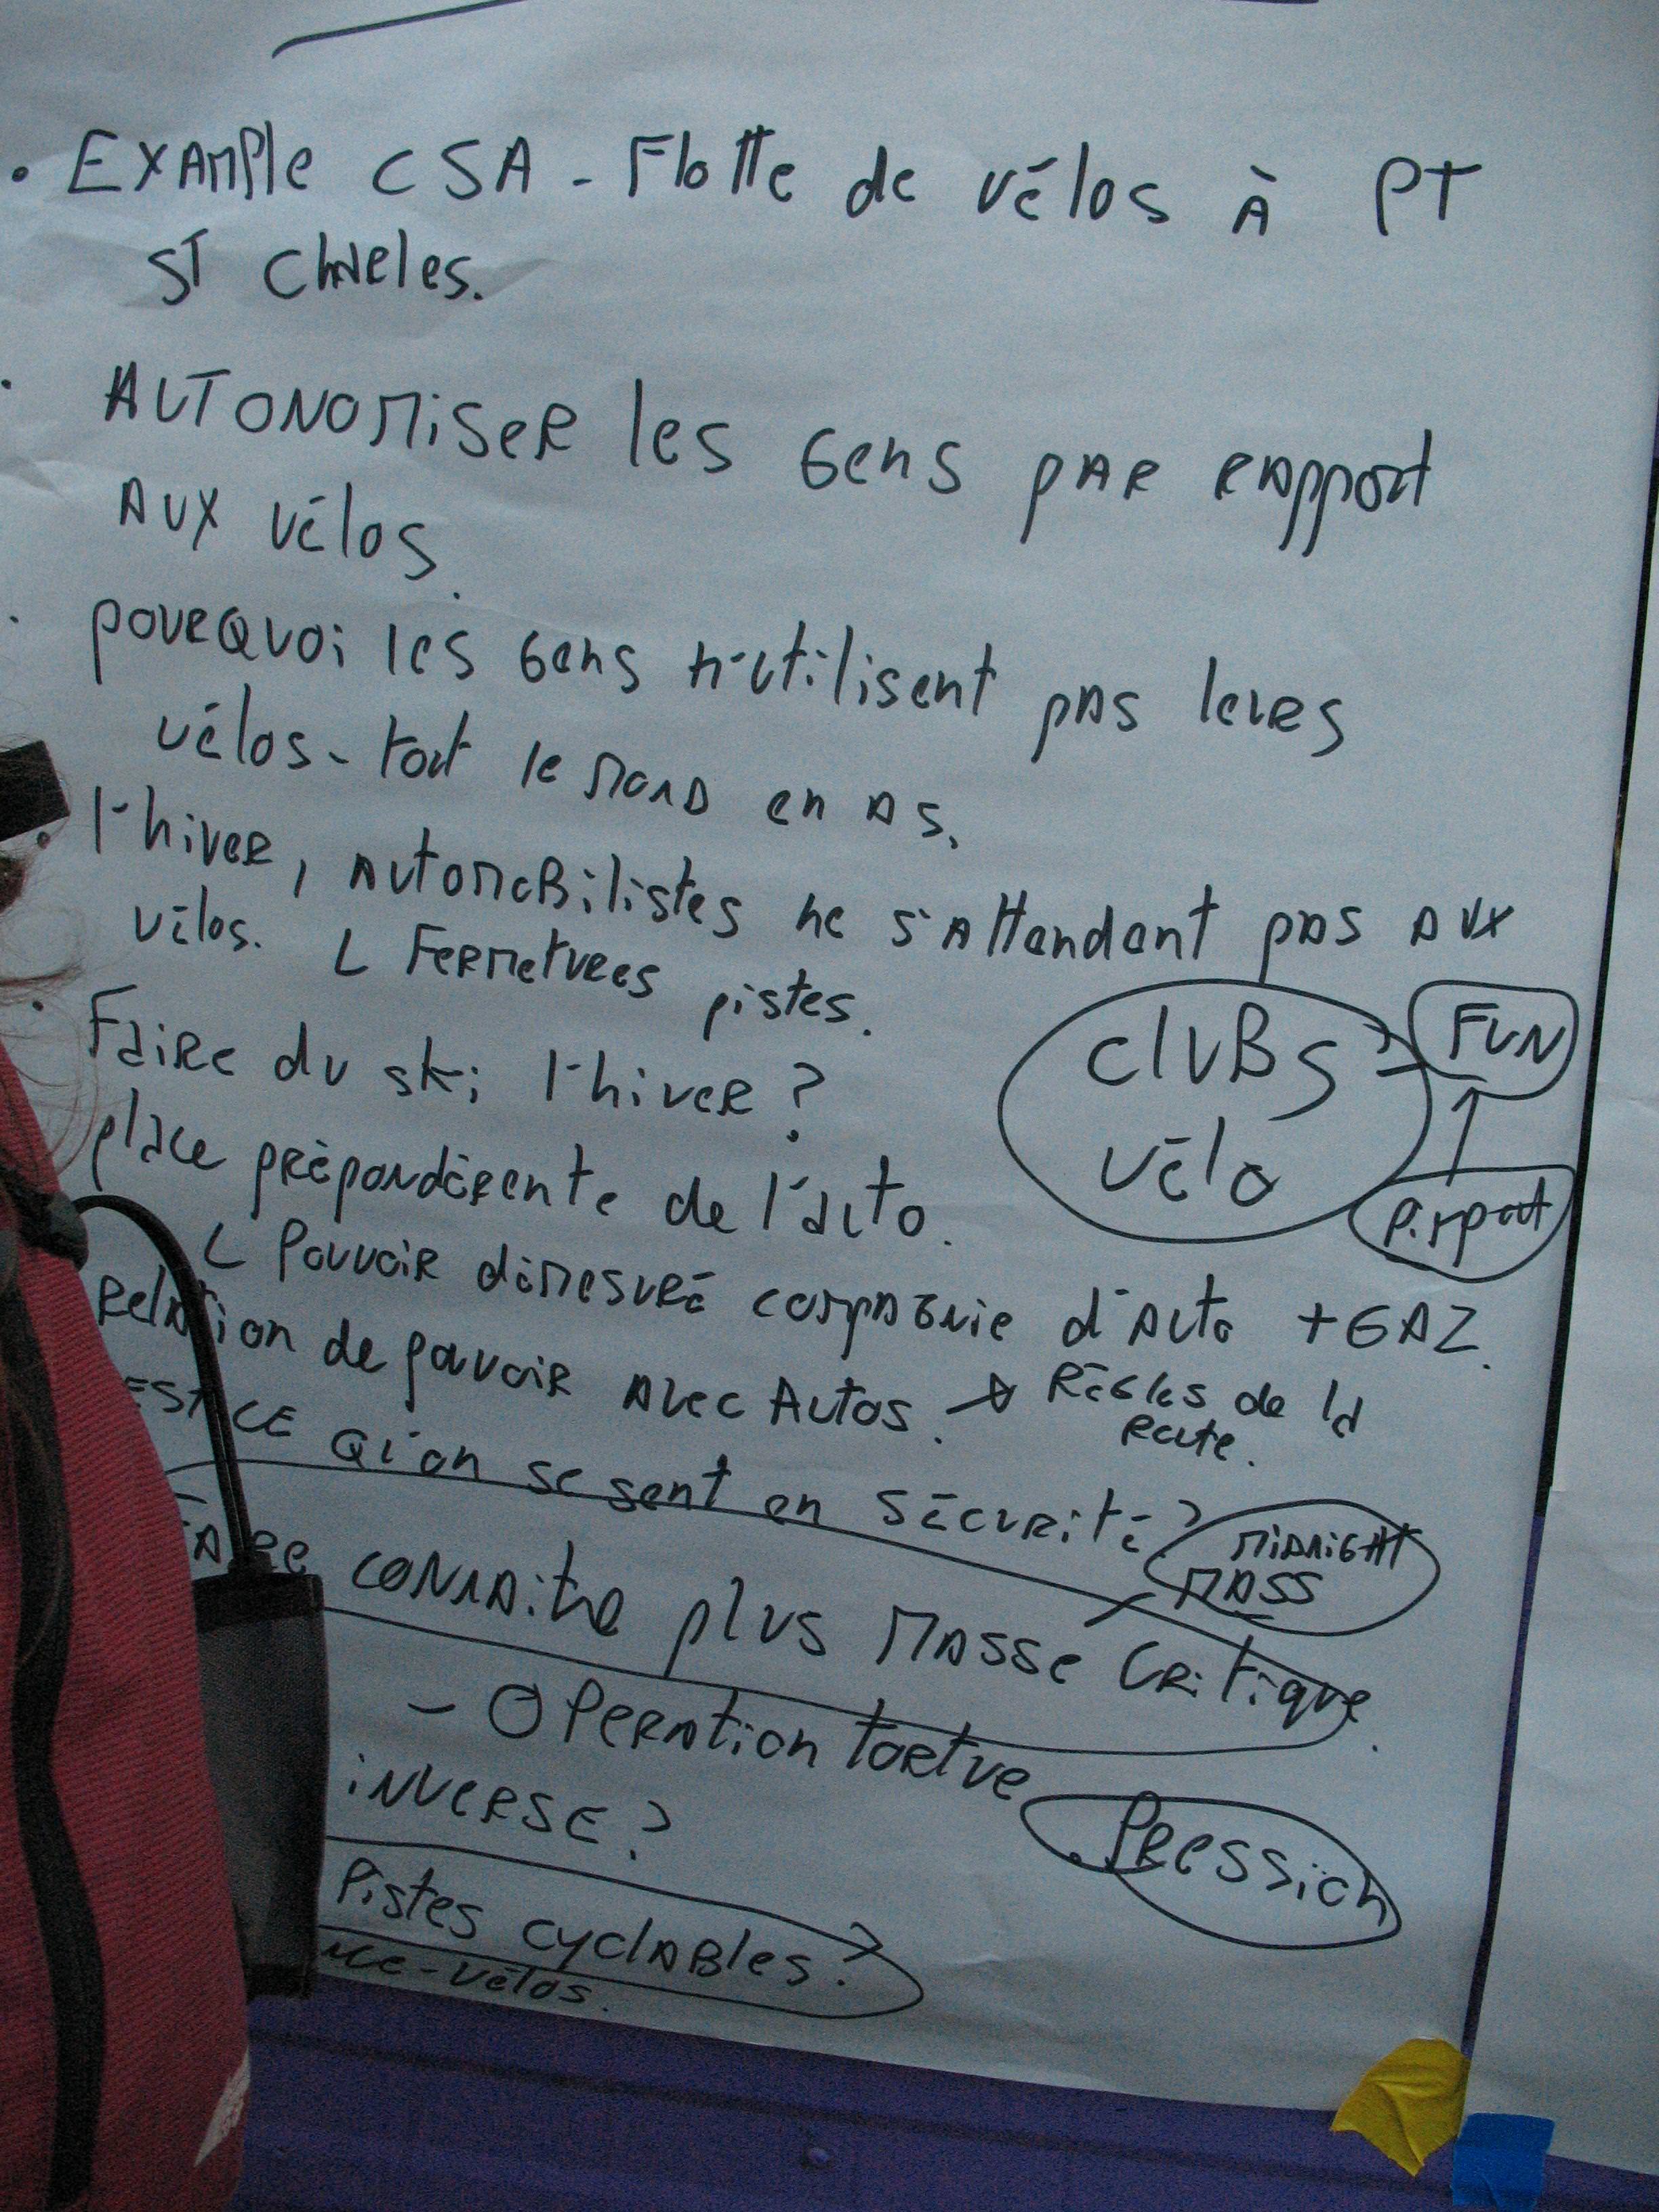 . Example CSA - Flotte de vélos à PT
ST Charles.
. AUTONOMiser les Gens par rapport
aux vélos.
. pourquoi les Gens n'utilisent pas leurs
vélos - tout le Mond en as.
. l'hiver, automobilistes ne s'attendent pas aux
vélos. L Fermetures pistes.
. Faire du ski l'hiver ?
CLUBS
vélo
FUN
place prépondérente de l'auto.
L Pouvoir démesuré compagnie d'auto + GAZ.
Relation de pouvoir avec Autos. → Règles de la
route.
EST CE qu'on se sent en sécurité ?
MIDNIGHT
MASS
Faire connaitre plus Masse Critique.
- Operation tortue
inverse ?
. Pression
Pistes cyclables ?
-vélos.